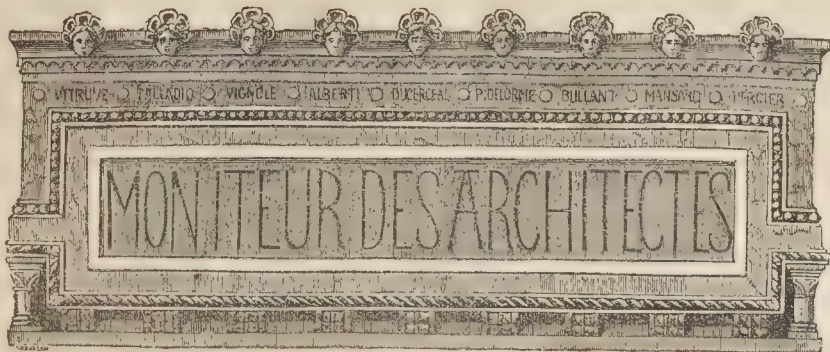 VITRUVE PALLADIO VIGNOLE ALBERTI DUCERCEAU P. DELORME BULLANT MANSARD MERCIER
MONITEUR DES ARCHITECTES